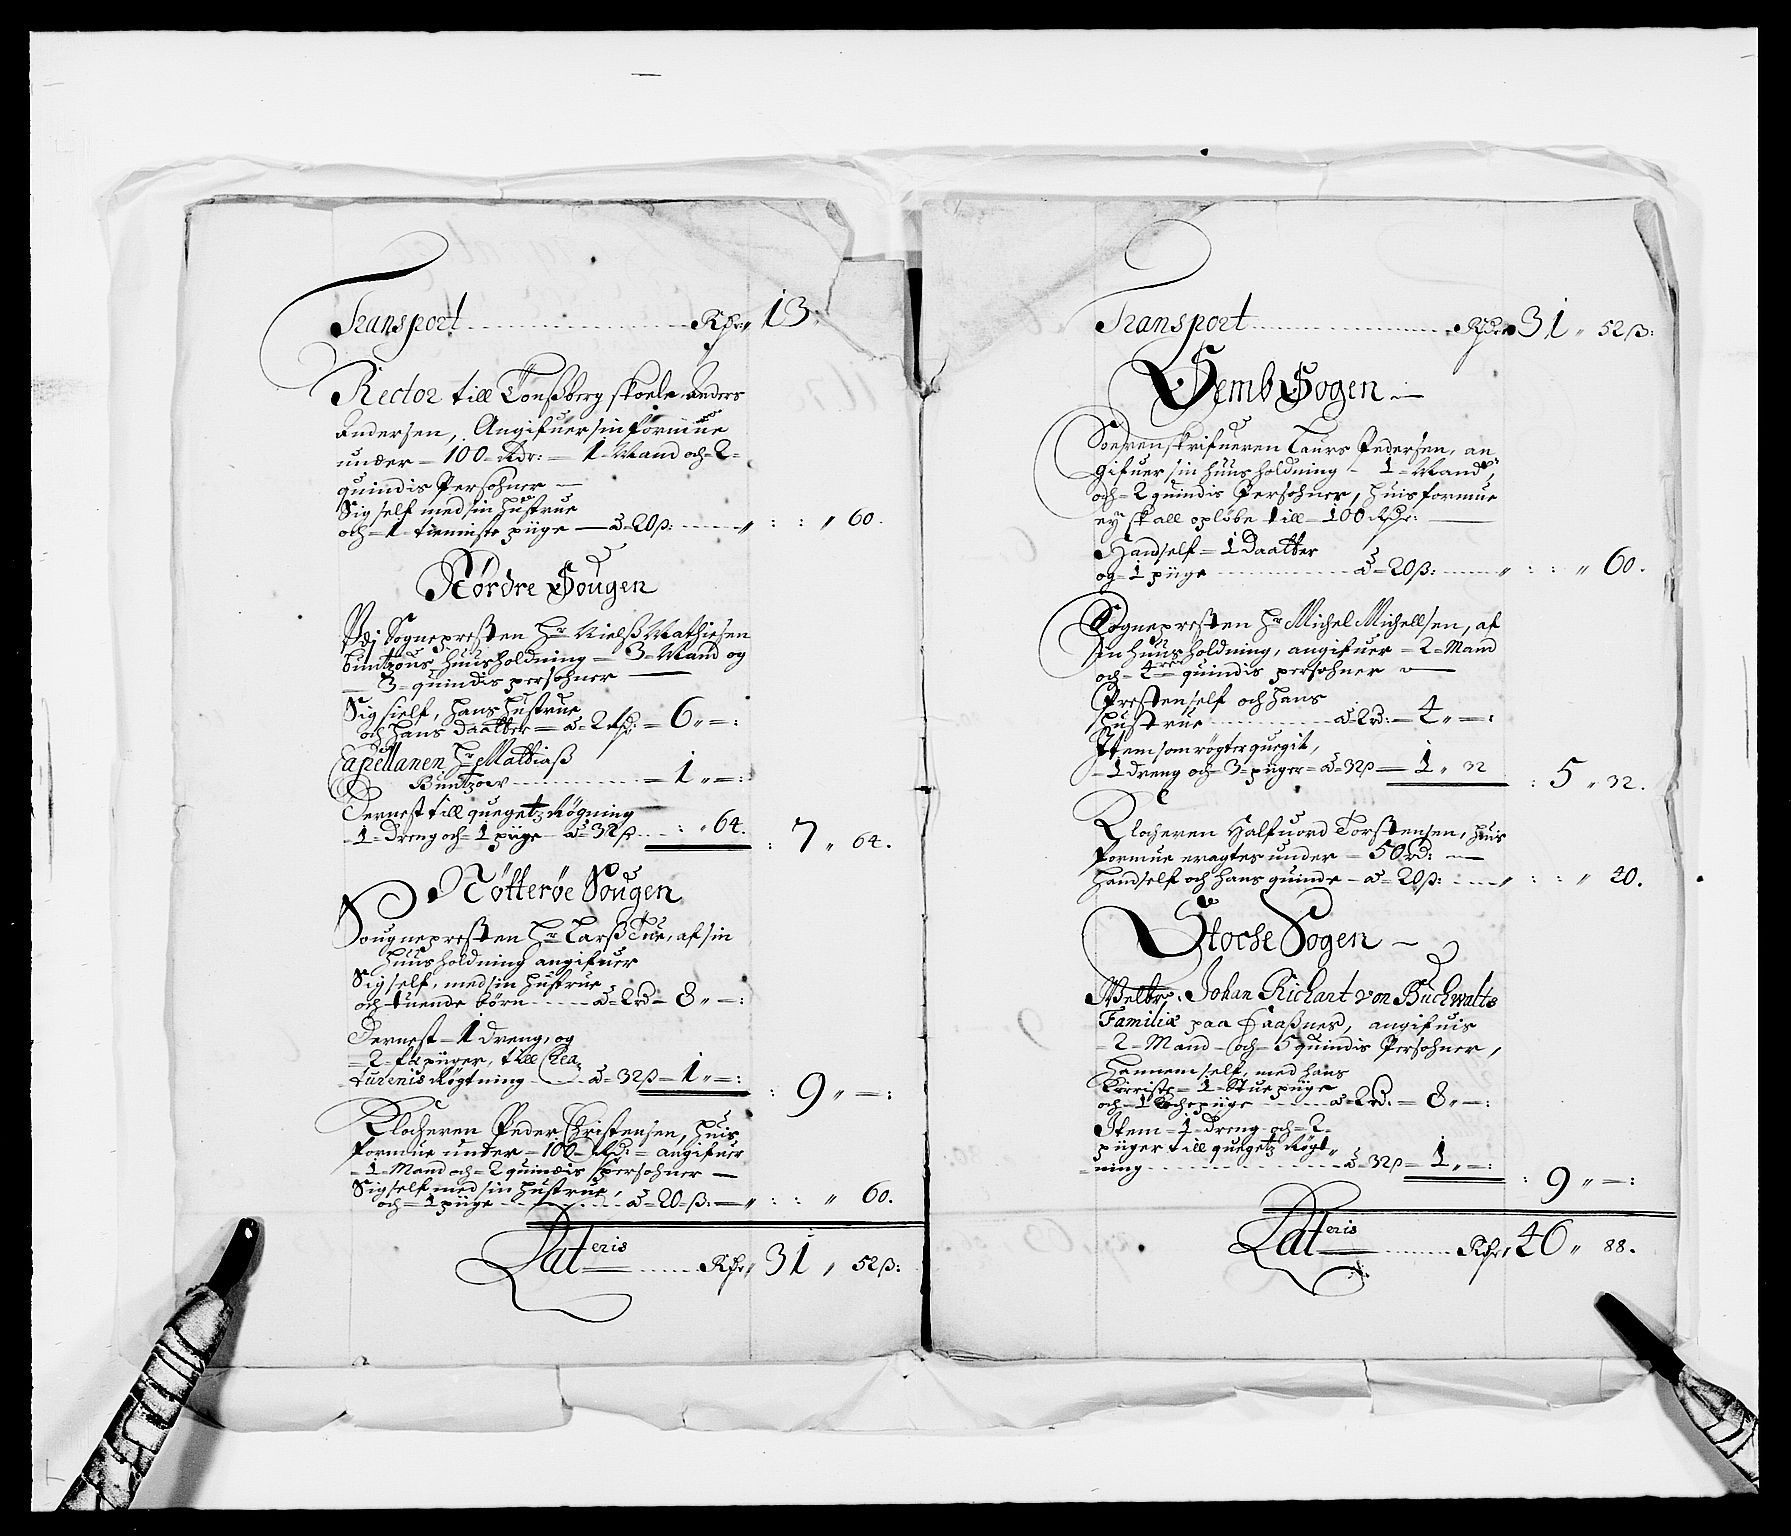 Transport Rdr: 13:
Rector till Tonßberg skoele Anders
Andersen, Angifuer sin formue
under - 100 - Rdr: - 1 - Mand och - 2 -
quindis Persohner -
Sig self med sin hustrue
och - 1 - tieniste piige - a - 20 ß: " : : " 60.
Nørdre Sougen
Sognepresten Hr Nielß Mathiesen
Buntzous huusholdning - 3 - Mand og
- 3 - quindis persohner -
Sig sielf, hans hustrue
och hans daatter - a - 2 Rd: - 6 " - :
Capellanen Hr Mattiaß
Buntzow - 1 " - :
Dernest till quegetz Røgning
- 1 - Dreng och - 1 piige - a - 32 ß : " 64. : 7 " 64.
Nøtterøe Sougen
Sougnepresten Hr Larß Tue, af sin
huusholdning angifuer
Sig self, med sin hustrue
och tuende børn a - 2 rd - 8 " - :
Dernest - 1 dreng, og
= 2 - piiger, till Crea
turenis Røgtning - a - 32 ß - 1 " - : : 9 " - :
Klocheren Peder Christensen, huis
formue under - 100 - Rd: = angifuer
- 1 - Mand och - 2 quindis persohner -
Sig self med sin hustrue,
och - 1 piige a - 20 - ß: - " : : " 60.
Lateris Rdr " 31 " 52 ß:
Transport Rdr 31 " 52 ß:
Semb Sogen -
Soerenskrifueren Laurs Pedersen, an
gifuer sin huusholdning - 1 - Mand
och = 2 quindis Persohner, huis formue
ey skall opløbe till - 100 Rdr: -
Hand self - 1 Daatter
og - 1 piige a - 20 ß: " : : " 60.
Sognepresten Hr Michel Michellsen, af
sin huusholdning, angifuer - 2 - Mand
och - 4re quindis persohner -
Presten self och hans
Hustrue a - 2 rd: - 4 " - :
Item som røgter quegit,
- 1 dreng och - 3 - piiger - a - 32 ß - 1 " 32 : 5 " 32.
Klocheren Halfuord Torstensen, huis
formue eragtes under - 50 rd: -
Hand self och hans quinde - a - 20 ß: " : : " 40.
Stoche Sogen -
Welbr: Johan Richart von Buchwalts
Familiæ paa Saaßnes, angifuis
- 2 - Mand - och - 5 quindis Persohner,
Hannem self, med hans
Kierriste - 1 - Stue piige
och - 1 Kochepiige a - 2 rd: - 8 " - :
Item - 1 - dreng och - 2 -
piiger till quegetz Røgt
ning a - 32 ß - 1 " - : : 9 " - :
Lateris Rdr 46 " 88.